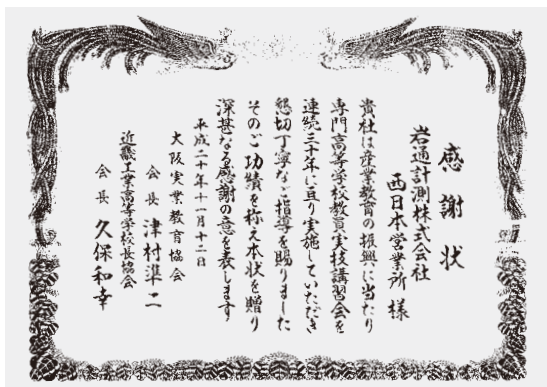 感謝状
岩通計測株式会社
西日本営業所 様
貴社は産業教育の振興に当たり
専門高等学校教員実技講習会を
連続三十年に亘り実施していただき
懇切丁寧なご指導を賜りました
そのご功績を称え本状を贈り
深甚なる感謝の意を表します
平成二十年十一月十二日
大阪実業教育協会
会長 津村準二
近畿工業高等学校長協会
会長 久保和幸